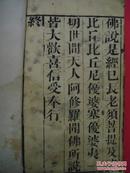 佛說是經已長老須菩提及諸
比丘比丘尼優婆塞優婆夷一
切世間天人阿修羅聞佛所說
皆大歡喜信受奉行
終